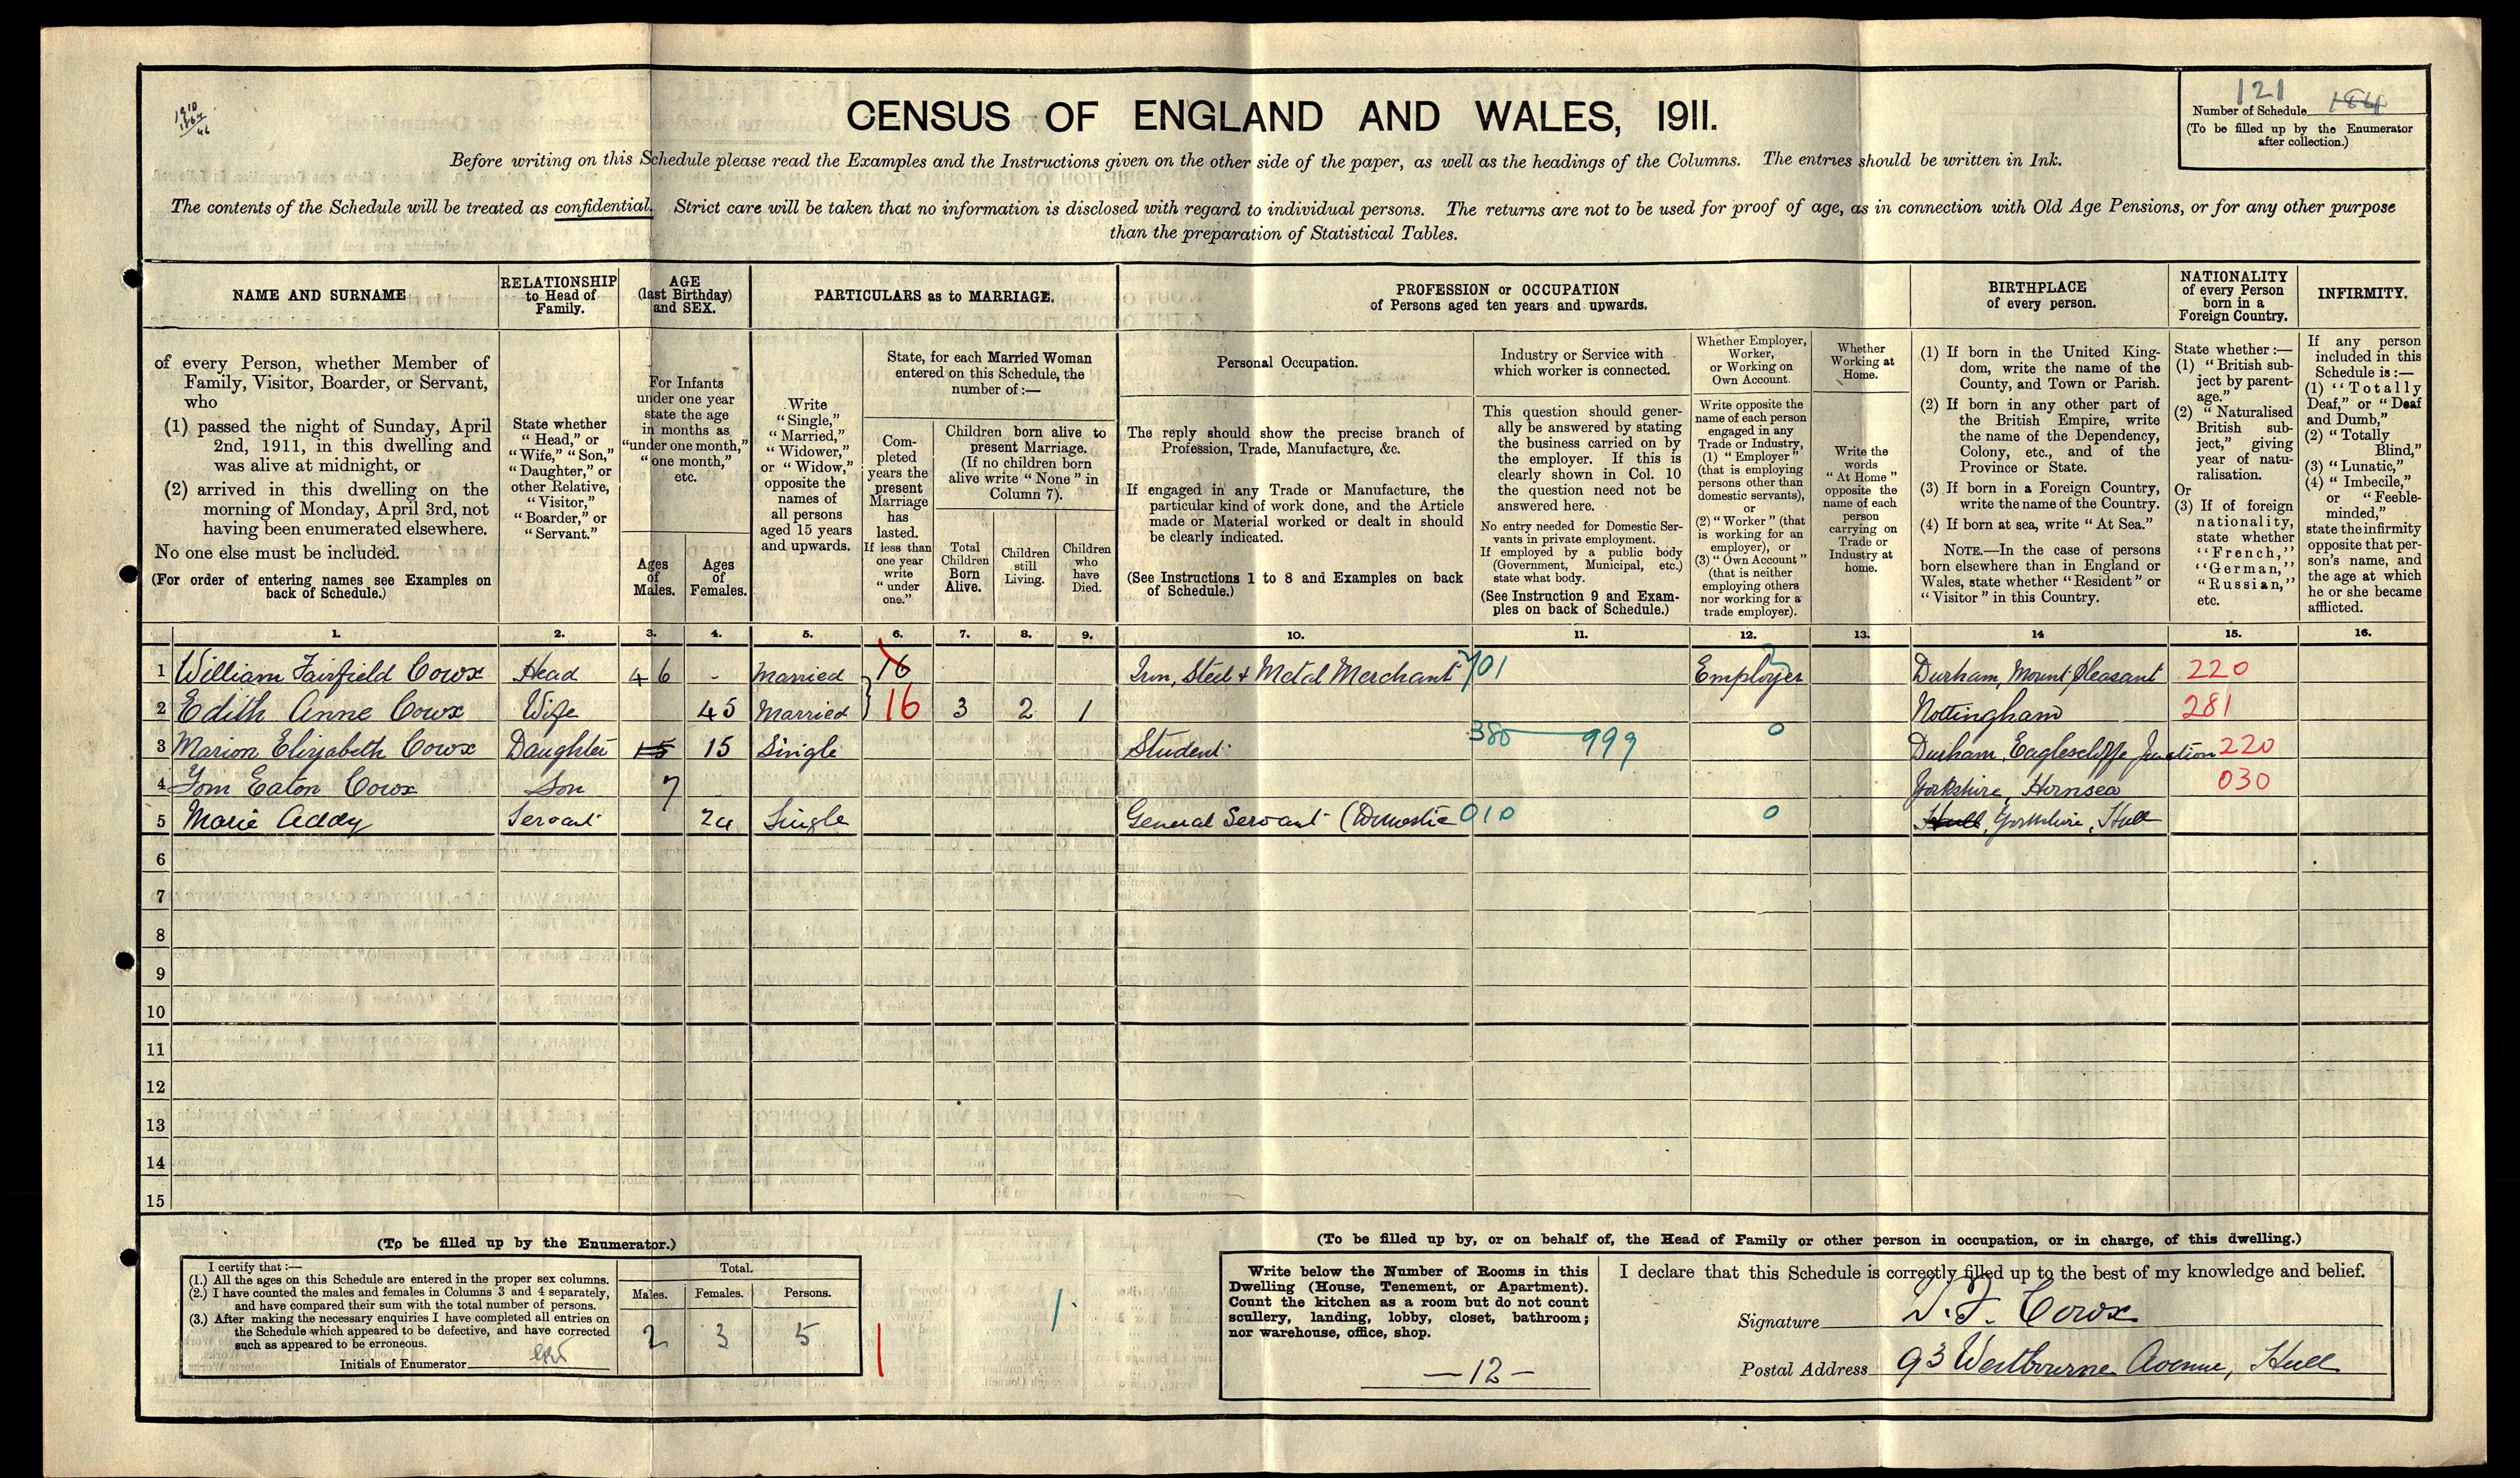 CENSUS OF ENGLAND AND WALES, 1911.
121
Number of Schedule 184
(To be filled up by the Enumerator
after collection.)
Before writing on this Schedule please read the Examples and the Instructions given on the other side of the paper, as well as the headings of the Columns. The entries should be written in Ink.
The contents of the Schedule will be treated as confidential. Strict care will be taken that no information is disclosed with regard to individual persons. The returns are not to be used for proof of age, as in connection with Old Age Pensions, or for any other purpose
than the preparation of Statistical Tables.
NAME AND SURNAME
of every Person, whether Member of
Family, Visitor, Boarder, or Servant,
who
(1) passed the night of Sunday, April
2nd, 1911, in this dwelling and
was alive at midnight, or
(2) arrived in this dwelling on the
morning of Monday, April 3rd, not
having been enumerated elsewhere.
No one else must be included.
(For order of entering names see Examples on
back of Schedule.)
RELATIONSHIP
to Head of
Family.
State whether
"Head," or
"Wife," "Son,"
"Daughter," or
other Relative,
"Visitor,"
"Boarder," or
"Servant."
AGE
(last Birthday)
and SEX.
For Infants
under one year
state the age
in months as
"under one month,"
"one month,"
etc.
Ages
of
Males.
Ages
of
Females.
PARTICULARS as to MARRIAGE.
Write
"Single,"
"Married,"
"Widower,"
or "Widow,"
opposite the
names of
all persons
aged 15 years
and upwards.
State, for each Married Woman
entered on this Schedule, the
number of:—
Com-
pleted
years the
present
Marriage
has
lasted.
If less than
one year
write
"under
one."
Children born alive to
present Marriage.
(If no children born
alive write "None" in
Column 7).
Total
Children
Born
Alive.
Children
still
Living.
Children
who
have
Died.
PROFESSION or OCCUPATION
of Persons aged ten years and upwards.
Personal Occupation.
The reply should show the precise branch of
Profession, Trade, Manufacture, &c.
If engaged in any Trade or Manufacture, the
particular kind of work done, and the Article
made or Material worked or dealt in should
be clearly indicated.
(See Instructions 1 to 8 and Examples on back
of Schedule.)
Industry or Service with
which worker is connected.
This question should gener-
ally be answered by stating
the business carried on by
the employer. If this is
clearly shown in Col. 10
the question need not be
answered here.
No entry needed for Domestic Ser-
vants in private employment.
If employed by a public body
(Government, Municipal, etc.)
state what body.
(See Instruction 9 and Exam-
ples on back of Schedule.)
Whether Employer,
Worker,
or Working on
Own Account.
Write opposite the
name of each person
engaged in any
Trade or Industry,
(1) "Employer"
(that is employing
persons other than
domestic servants),
or
(2) "Worker" (that
is working for an
employer), or
(3) "Own Account"
(that is neither
employing others
nor working for a
trade employer).
Whether
Working at
Home.
Write the
words
"At Home"
opposite the
name of each
person
carrying on
Trade or
Industry at
home.
BIRTHPLACE
of every person.
(1) If born in the United King-
dom, write the name of the
County, and Town or Parish.
(2) If born in any other part of
the British Empire, write
the name of the Dependency,
Colony, etc., and of the
Province or State.
(3) If born in a Foreign Country,
write the name of the Country.
(4) If born at sea, write "At Sea."
NOTE.—In the case of persons
born elsewhere than in England or
Wales, state whether "Resident" or
"Visitor" in this Country.
NATIONALITY
of every Person
born in a
Foreign Country.
State whether:—
(1) "British sub-
ject by parent-
age."
(2) "Naturalised
British sub-
ject," giving
year of natu-
ralisation.
Or
(3) If of foreign
nationality,
state whether
"French,"
"German,"
"Russian,"
etc.
INFIRMITY.
If any person
included in this
Schedule is:—
(1) "Totally
Deaf," or "Deaf
and Dumb,"
(2) "Totally
Blind,"
(3) "Lunatic,"
(4) "Imbecile,"
or "Feeble-
minded,"
state the infirmity
opposite that per-
son's name, and
the age at which
he or she became
afflicted.
1. 2. 3. 4. 5. 6. 7. 8. 9. 10. 11. 12. 13. 14 15. 16.
1 William Fairfield Cowx Head 46 - Married 16 Iron, Steel & Metal Merchant 701 Employer Durham, Mount Pleasant 220
2 Edith Anne Cowx Wife 45 Married 16 3 2 1 Nottingham 281
3 Marion Elizabeth Cowx Daughter 15 15 Single Student 380 999 0 Durham, Eaglescliffe Junction 220
4 Tom Eaton Cowx Son 7 Yorkshire, Hornsea 030
5 Marie Addy Servant 24 Single General Servant (Domestic 010 0 Hull, Yorkshire, Hull
6
7
8
9
10
11
12
13
14
15
(To be filled up by the Enumerator.)
I certify that:—
(1.) All the ages on this Schedule are entered in the proper sex columns.
(2.) I have counted the males and females in Columns 3 and 4 separately,
and have compared their sum with the total number of persons.
(3.) After making the necessary enquiries I have completed all entries on
the Schedule which appeared to be defective, and have corrected
such as appeared to be erroneous.
Initials of Enumerator
Total.
Males. Females. Persons.
2 3 5
(To be filled up by, or on behalf of, the Head of Family or other person in occupation, or in charge, of this dwelling.)
Write below the Number of Rooms in this
Dwelling (House, Tenement, or Apartment).
Count the kitchen as a room but do not count
scullery, landing, lobby, closet, bathroom;
nor warehouse, office, shop.
—12—
I declare that this Schedule is correctly filled up to the best of my knowledge and belief.
Signature W. F. Cowx
Postal Address 93 Westbourne Avenue, Hull